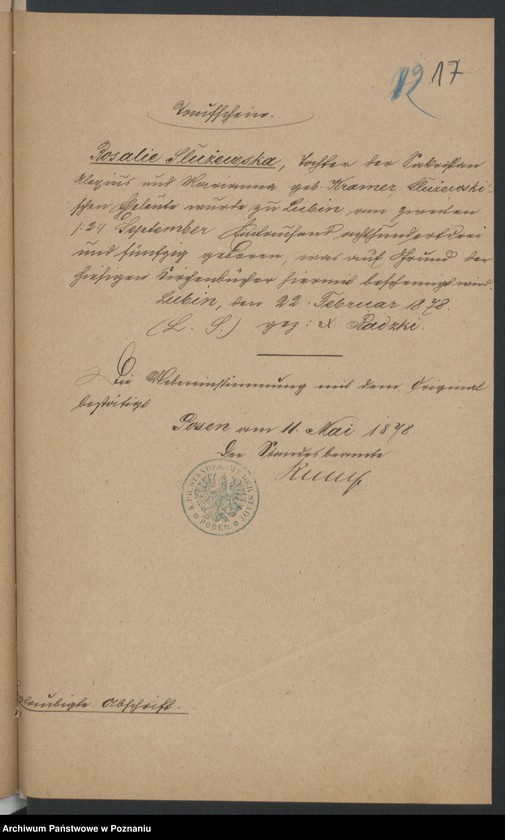 12 17
Taufschein.
Rosalie Służewska, Tochter der Sakristan
Alexius und Marianna geb. Kramer, Służewski'
schen Eheleute wurde zu Lubin am zweiten
/:2:/ September Eintausend achthundertdrei
und fünfzig geboren, was auf Grund der
hiesigen Kirchenbücher hiermit bescheinigt wird.
Lubin, den 22. Februar 1878.
(L. S.) gez: X Radzki.
Die Uebereinstimmung mit dem Original
bestätigt
Posen am 11. Mai 1878
Der Standesbeamte
STANDESAMT DER STADT
POSEN
laubigte Abschrift.
Archiwum Państwowe w Poznaniu